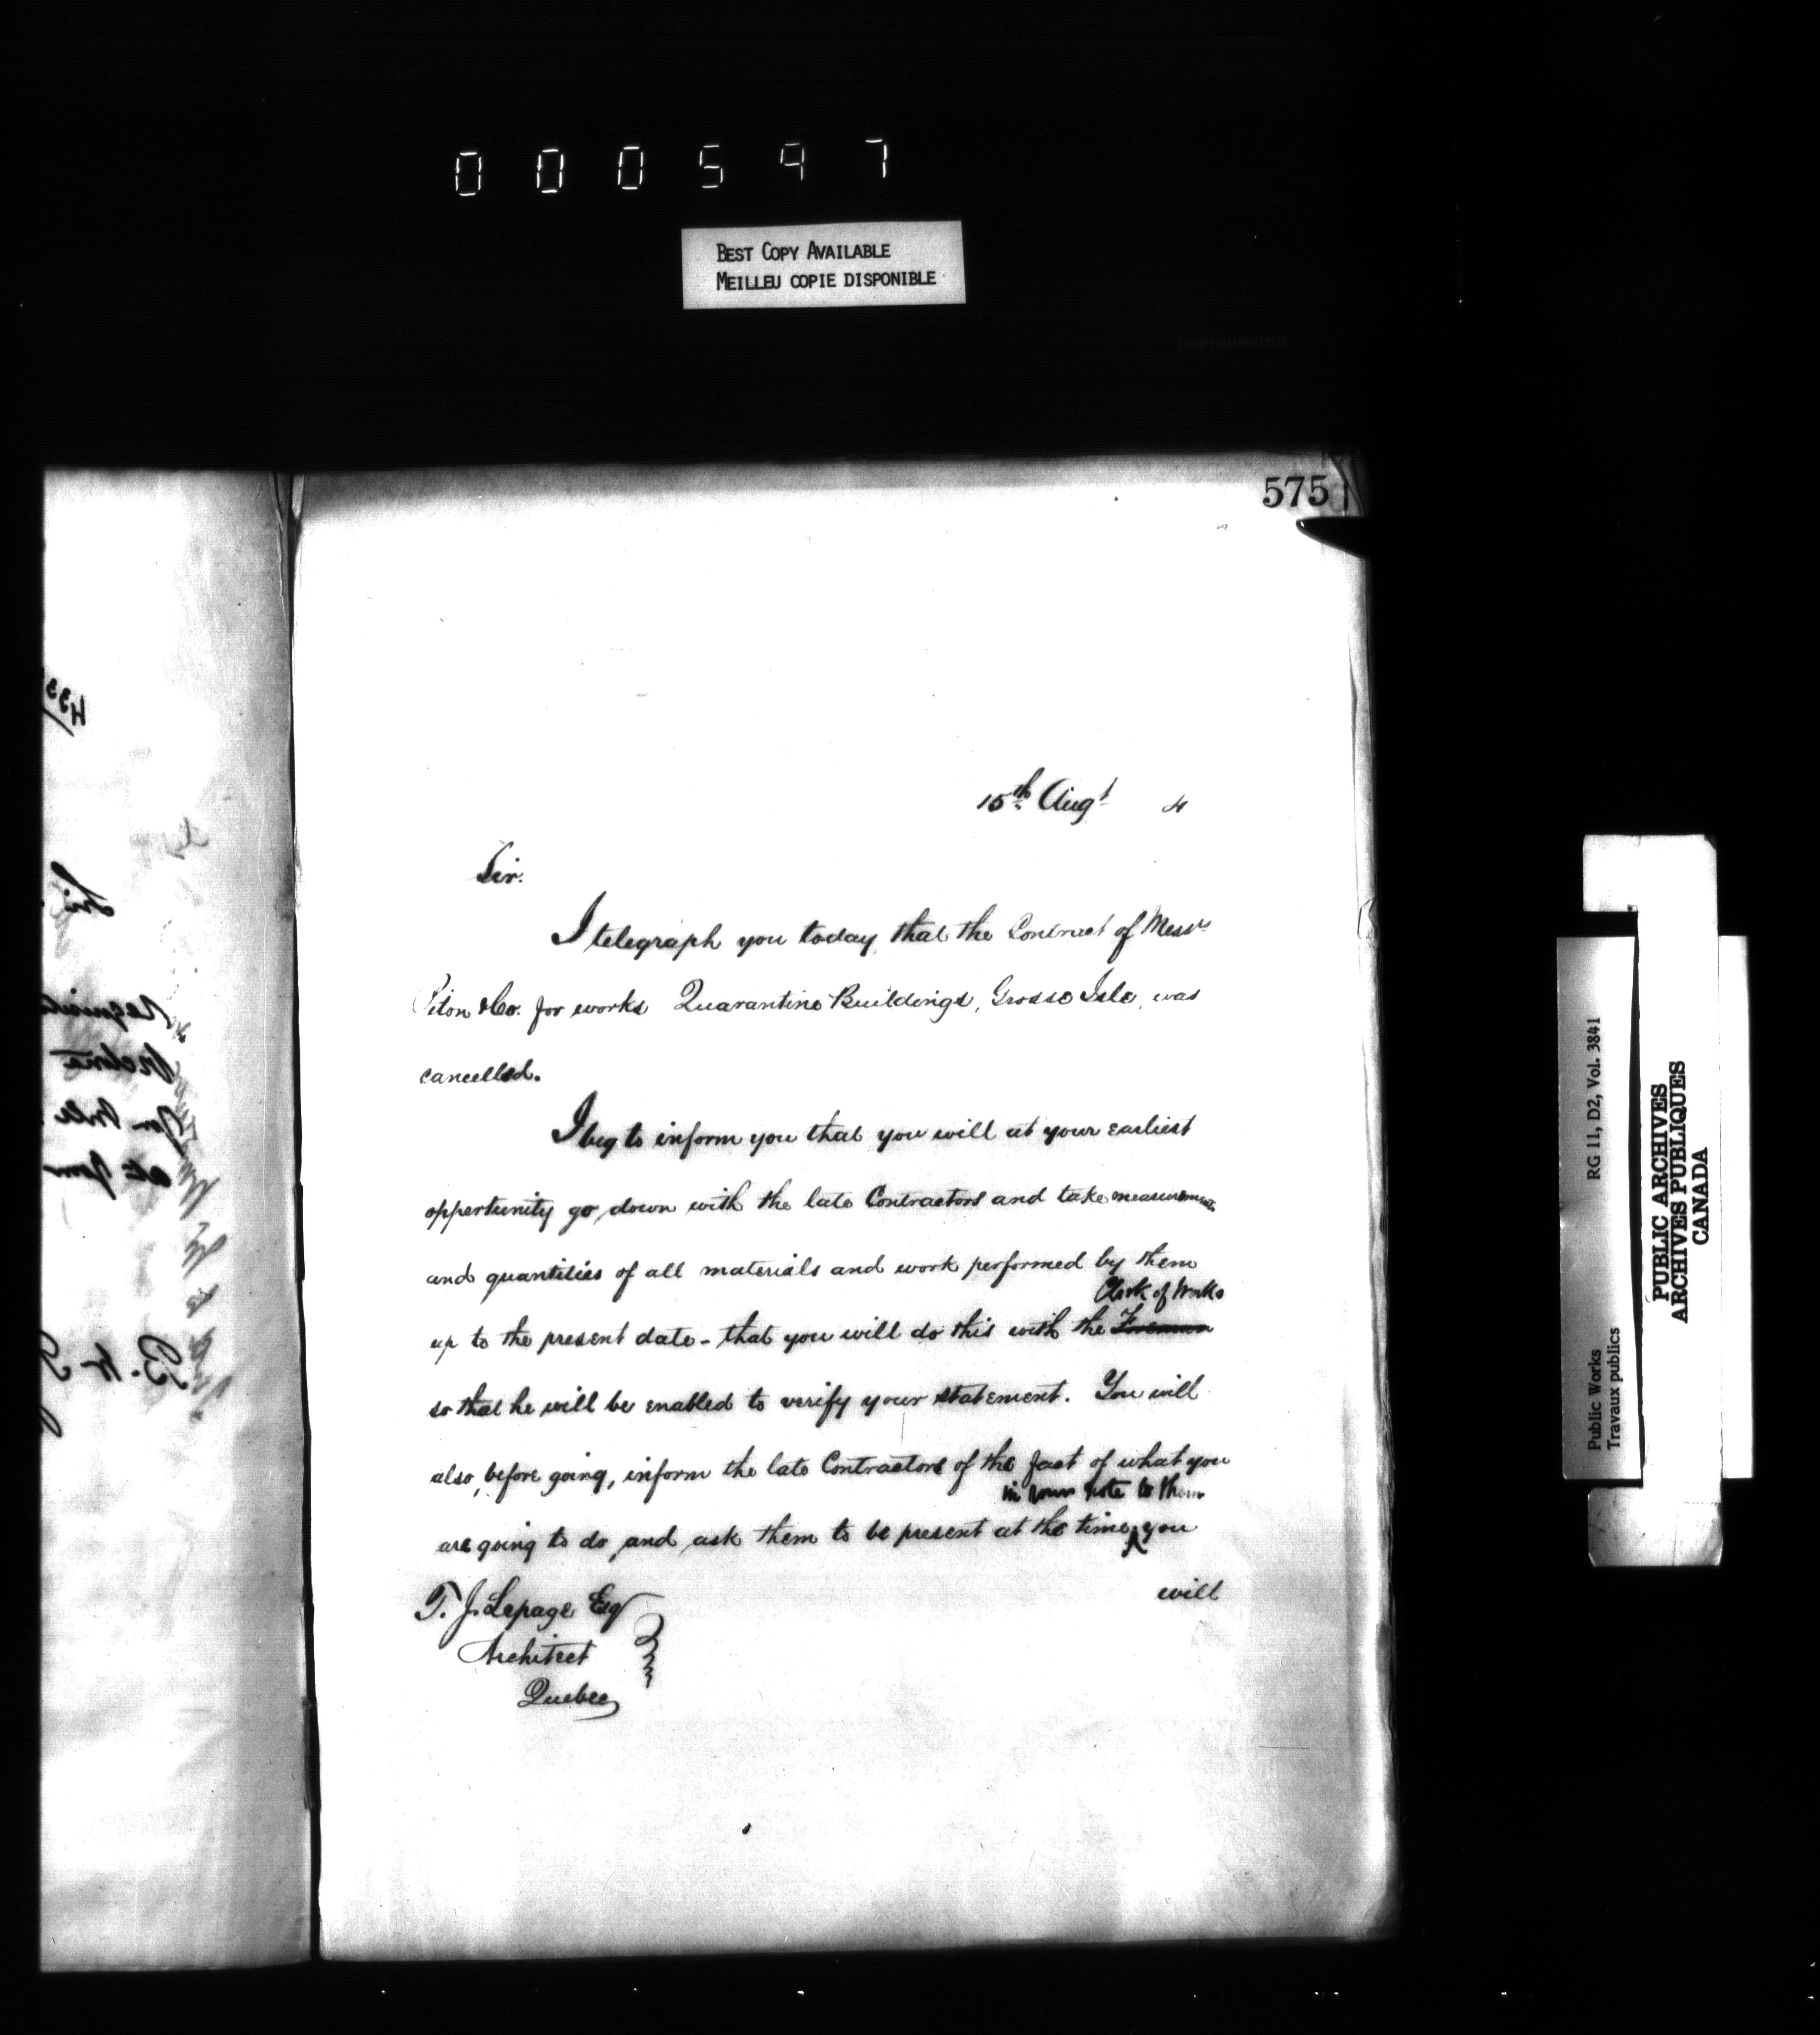 000597
BEST COPY AVAILABLE
MEILLEU COPIE DISPONIBLE
575
15th Augt 4
Sir.
I telegraph you today that the Contract of Messrs
Piton & Co. for works Quarantine Buildings, Grosse Isle, was
cancelled.
I beg to inform you that you will at your earliest
opportunity go down with the late Contractors and take measurements
and quantities of all materials and work performed by them
Clerk of Works
up to the present date - that you will do this with the Foreman
so that he will be enabled to verify your statement. You will
also, before going, inform the late Contractors of the fact of what you
in your note to them
are going to do, and ask them to be present at the time, you
will
T. J. Lepage Esq
Architect
Quebec
RG 11, D2, Vol. 3841
Public Works
Travaux publics
PUBLIC ARCHIVES
ARCHIVES PUBLIQUES
CANADA